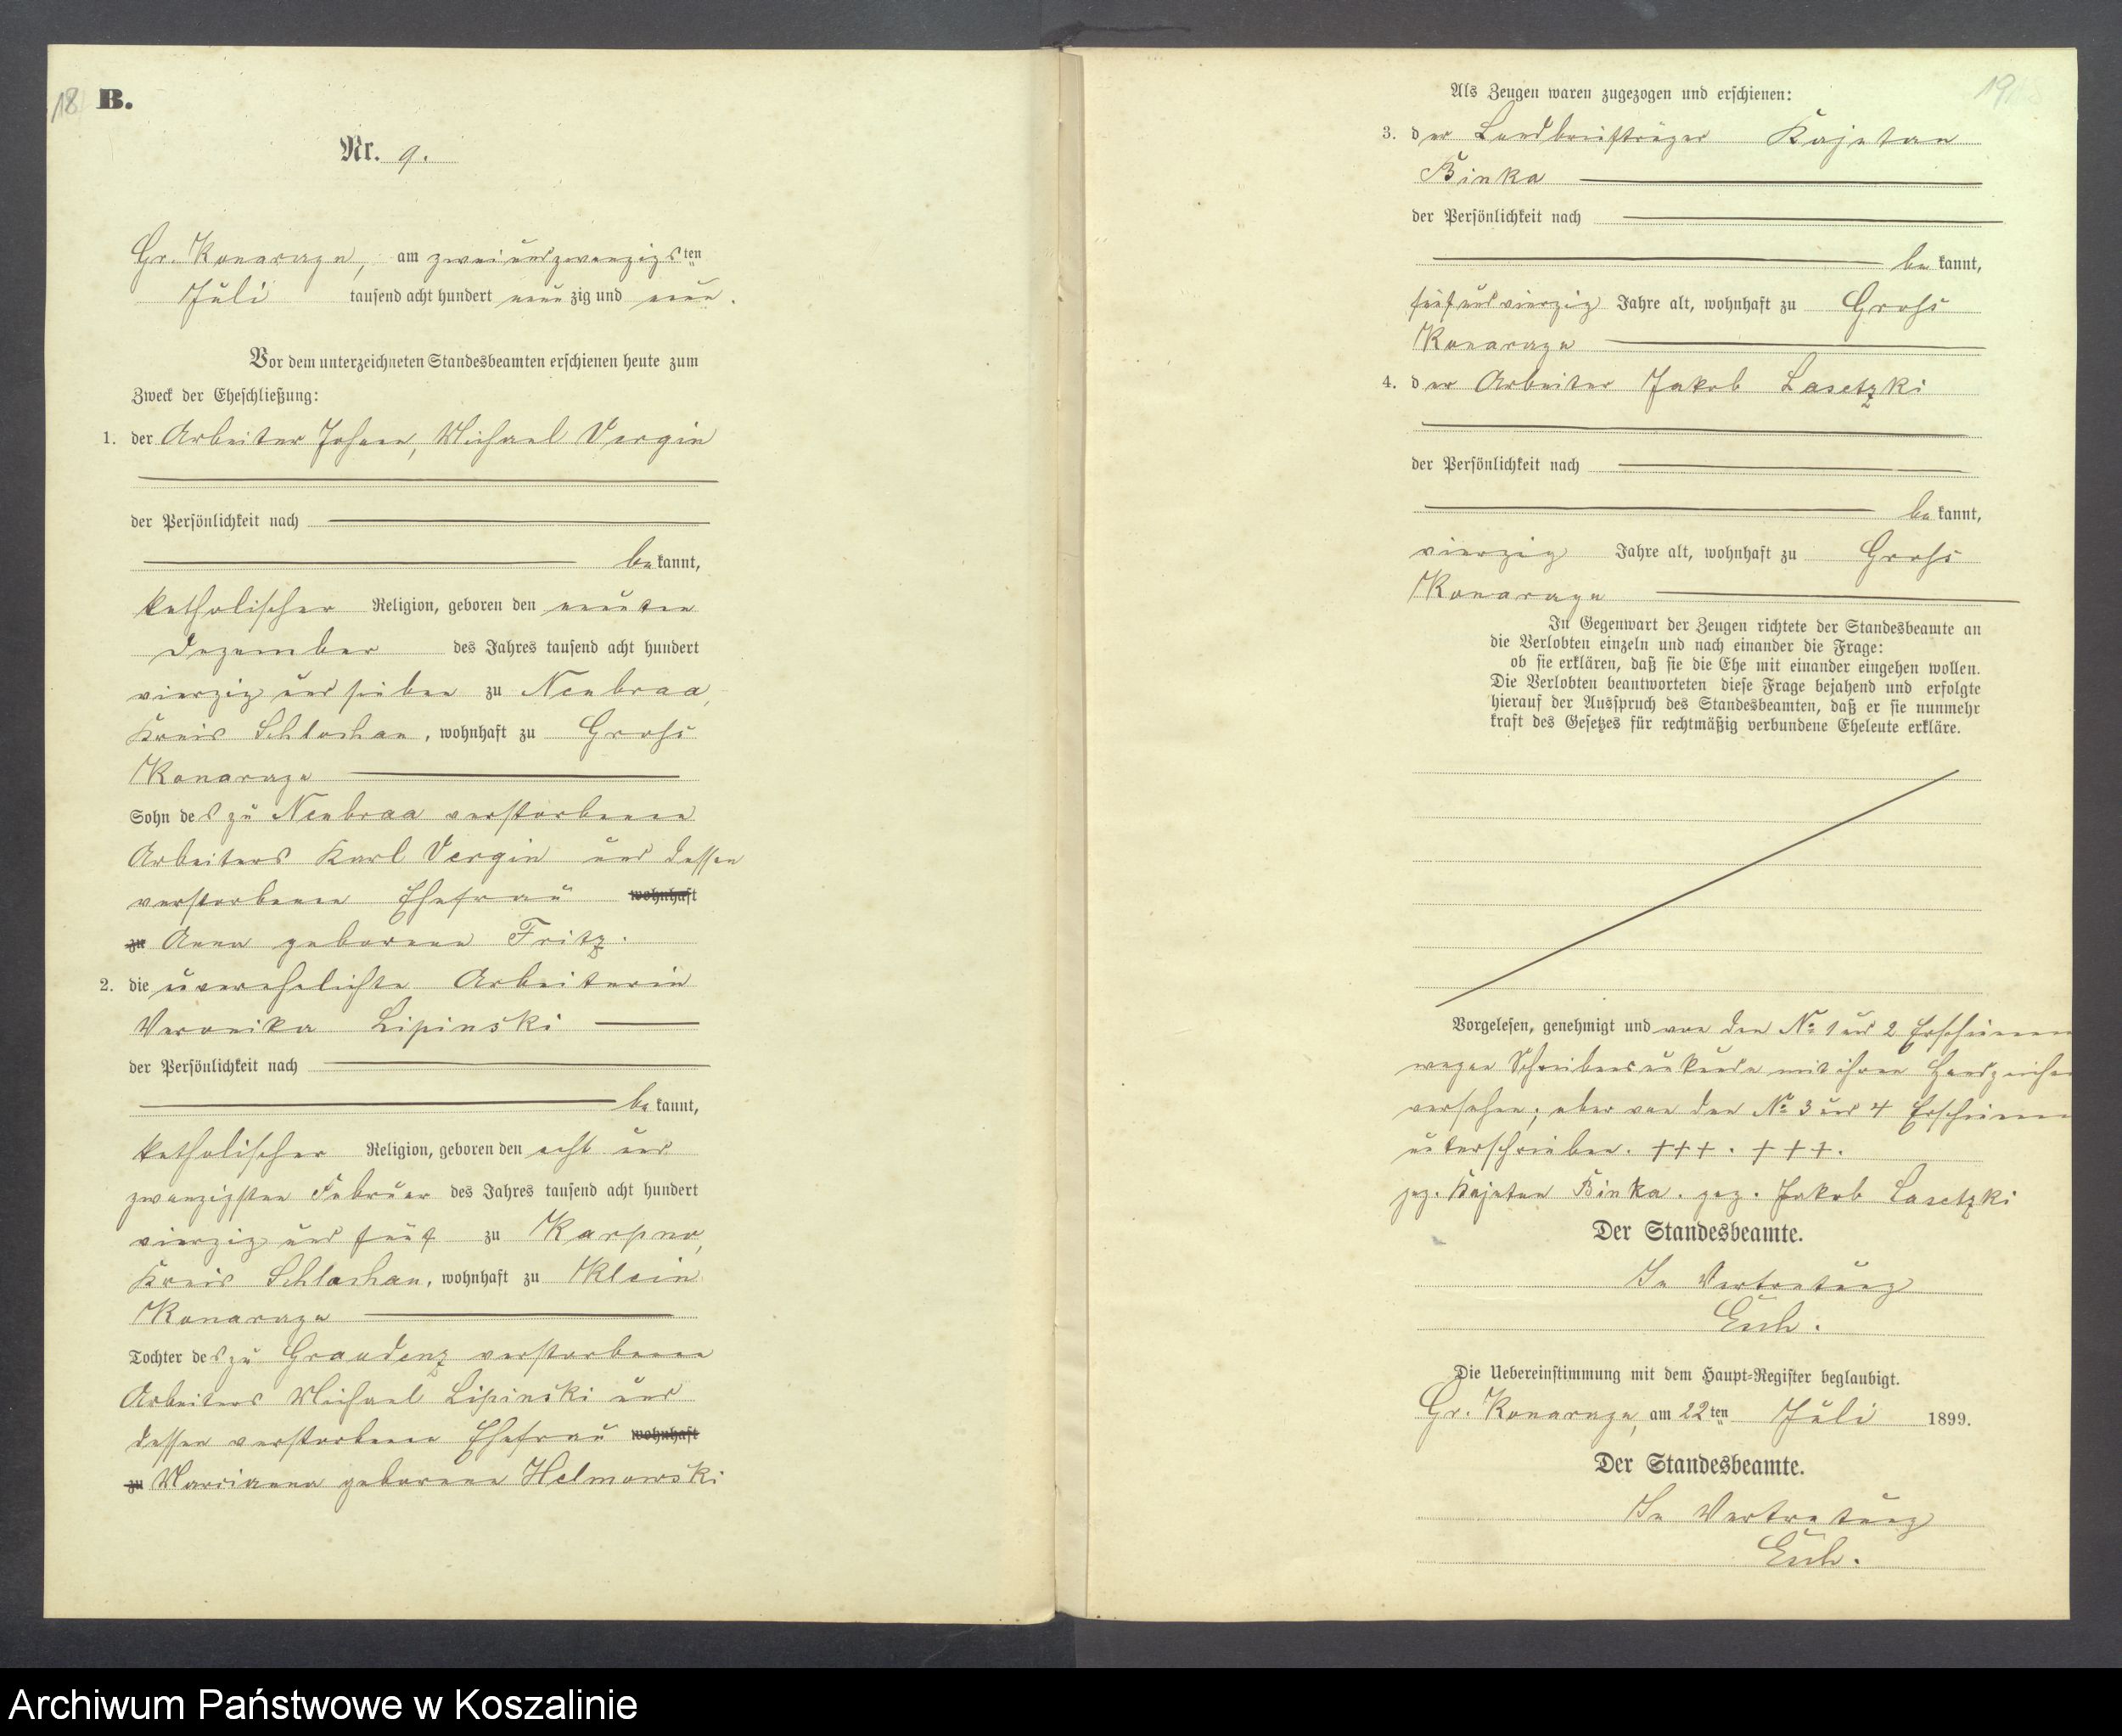 18
B.
Nr. 9.
Gr. Konarczyn, am zweiundzwanzigsten
Juli tausend acht hundert neunzig und neun.
Vor dem unterzeichneten Standesbeamten erschienen heute zum
Zweck der Eheschließung:
1. der Arbeiter Johann, Michael Vergin
der Persönlichkeit nach
bekannt,
katholischer Religion, geboren den neunten
Dezember des Jahres tausend acht hundert
vierzig und sieben zu Neubraa,
Kreis Schlochau, wohnhaft zu Gross
Konarczyn
Sohn des zu Neubraa verstorbenen
Arbeiters Karl Vergin und dessen
verstorbenen Ehefrau wohnhaft
zu Anna geborenen Fritz.
2. die unverehelichte Arbeiterin
Veronika Lipinski
der Persönlichkeit nach
bekannt,
katholischer Religion, geboren den acht und
zwanzigsten Februar des Jahres tausend acht hundert
vierzig und fünf zu Karpno,
Kreis Schlochau, wohnhaft zu Klein
Konarczyn
Tochter des zu Graudenz verstorbenen
Arbeiters Michael Lipinski und
dessen verstorbenen Ehefrau wohnhaft
zu Marianna geborenen Helmowski
19
Als Zeugen waren zugezogen und erschienen:
3. der Landbriefträger Kajetan
Binka
der Persönlichkeit nach
bekannt,
fünfundvierzig Jahre alt, wohnhaft zu Gross
Konarczyn
4. der Arbeiter Jakob Lasetzki
der Persönlichkeit nach
bekannt,
vierzig Jahre alt, wohnhaft zu Gross
Konarczyn
In Gegenwart der Zeugen richtete der Standesbeamte an
die Verlobten einzeln und nach einander die Frage:
ob sie erklären, daß sie die Ehe mit einander eingehen wollen.
Die Verlobten beantworteten diese Frage bejahend und erfolgte
hierauf der Ausspruch des Standesbeamten, daß er sie nunmehr
kraft des Gesetzes für rechtmäßig verbundene Eheleute erkläre.
Vorgelesen, genehmigt und von den No 1 und 2 Erschienenen
wegen Schreibensunkunde mit ihren Handzeichen
versehen; aber von den No 3 und 4 Erschienenen
unterschrieben. +++. +++.
gez. Kajetan Binka. gez. Jakob Lasetzki
Der Standesbeamte.
In Vertretung
Der Uebereinstimmung mit dem Haupt-Register beglaubigt.
Gr. Konarczyn, am 22ten Juli 1899.
Der Standesbeamte.
In Vertretung
Archiwum Państwowe w Koszalinie